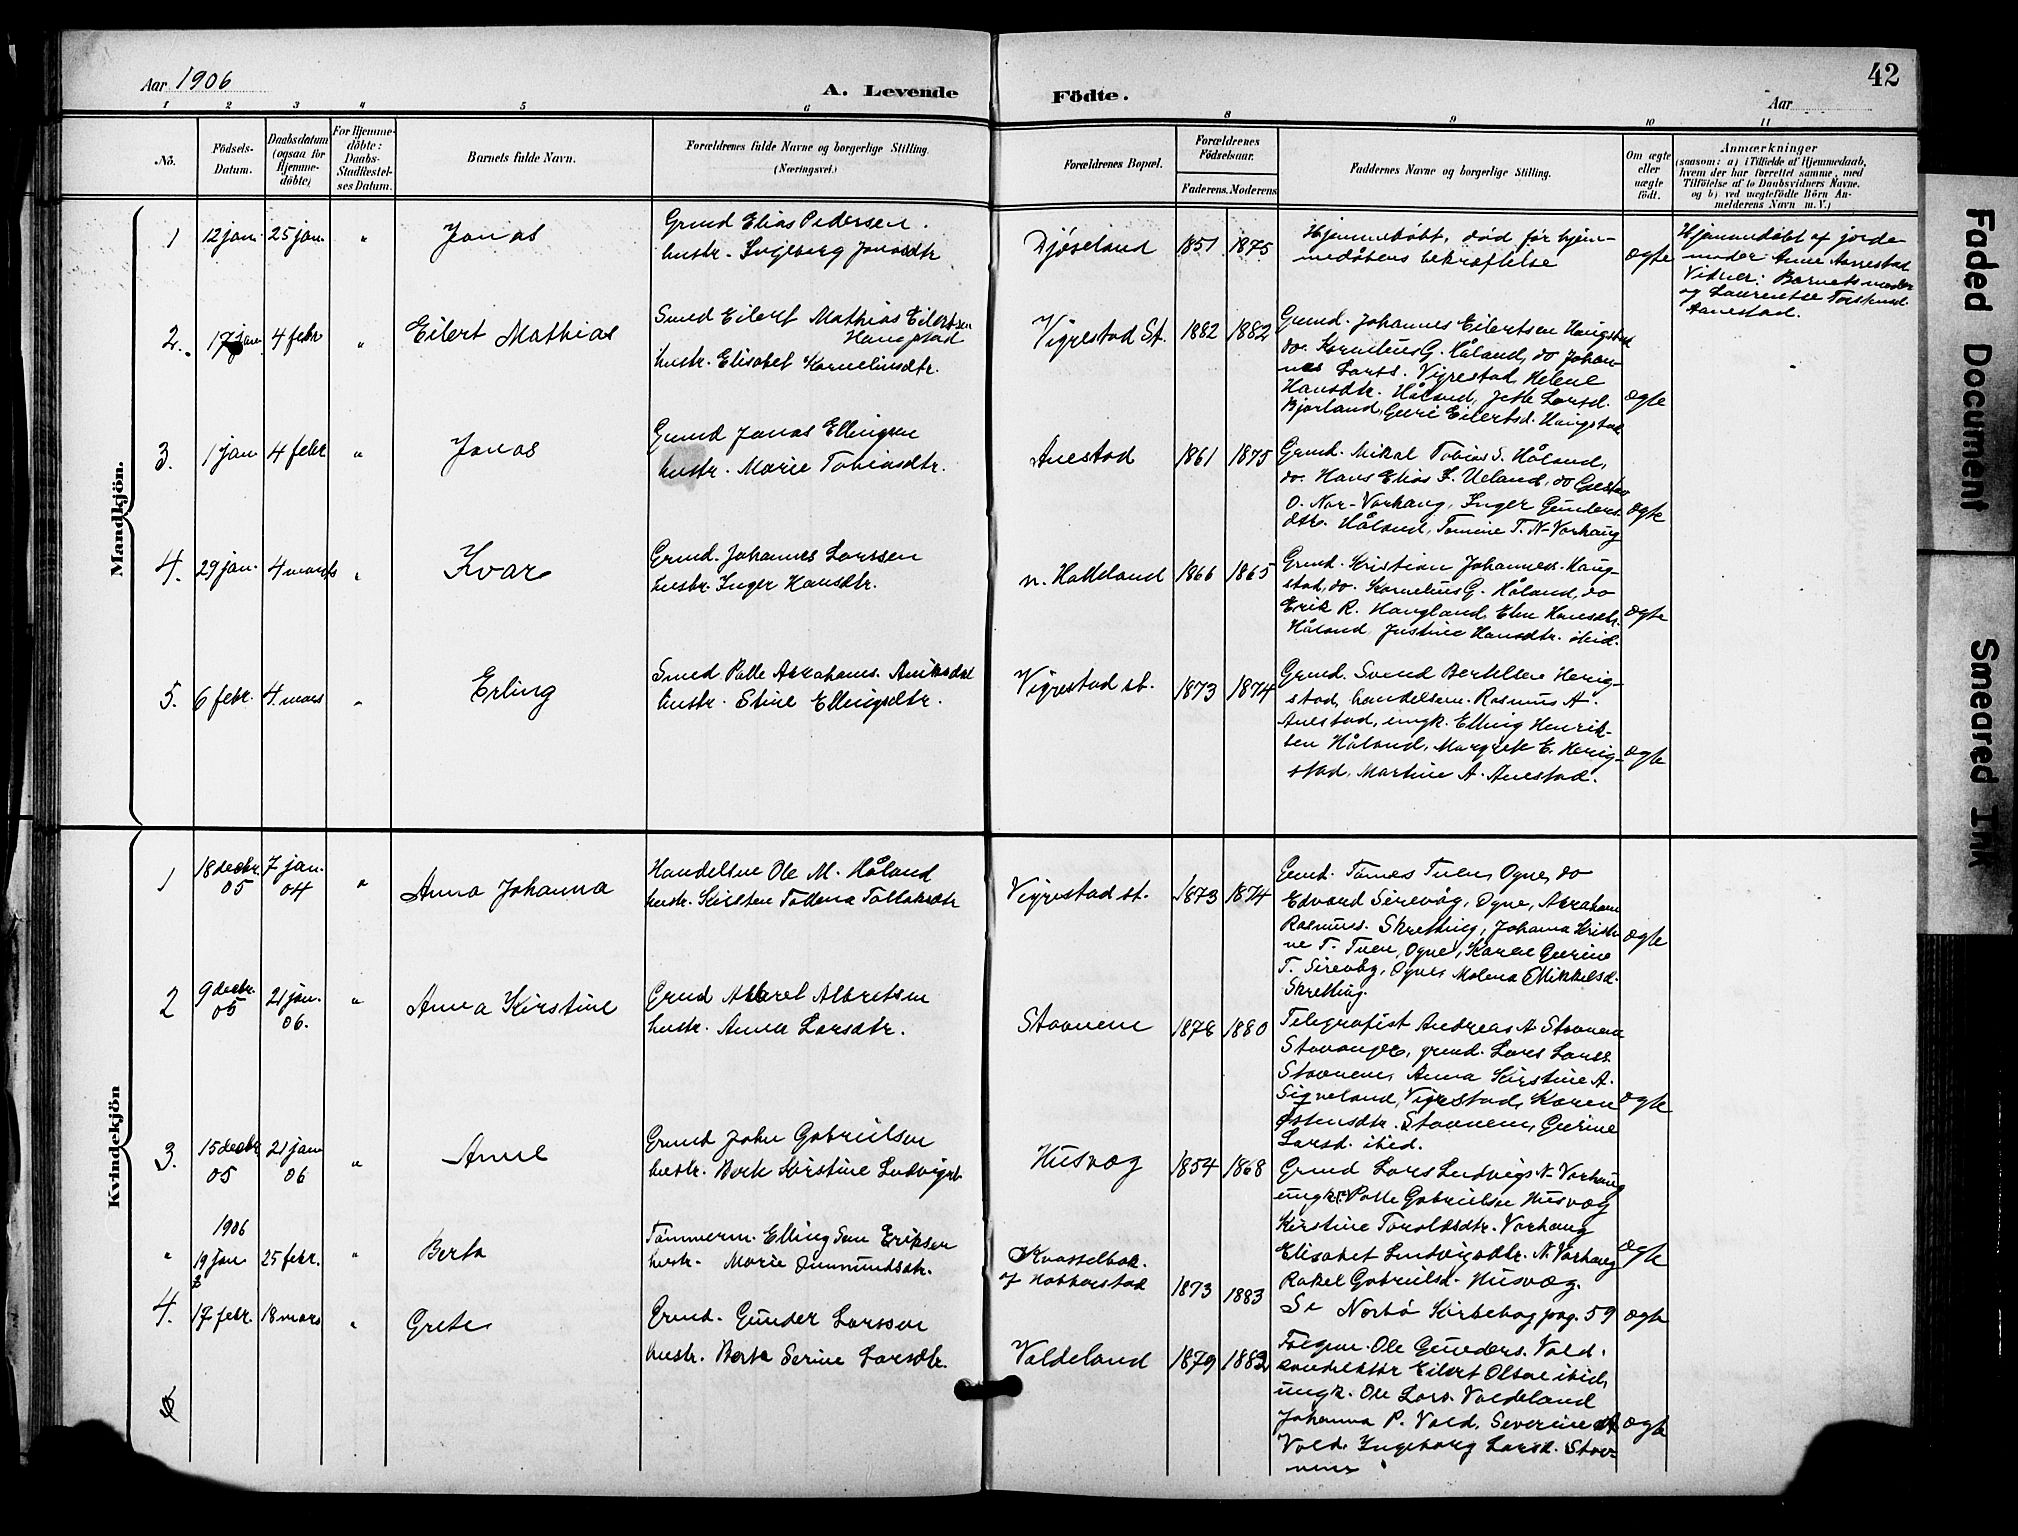 Aar 1906
A. Levende Födte.
42
Aar
1 2 3 4 5 6 8 9 10 11
No.
Födsels-Datum.
Daabsdatum (ogsaa for Hjemme-döbte)
For Hjemme-döbte: Daabs-Stadfæstel-ses Datum.
Barnets fulde Navn.
Forældrenes fulde Navne og borgerlige Stilling. (Næringsvei.)
Forældrenes Bopæl.
Forældrenes Födselsaar.
Faderens. Moderens
Faddernes Navne og borgerlige Stilling.
Om ægte eller uægte födt.
Anmærkninger
(saasom: a) i Tilfælde af Hjemmedaab,
hvem der har forrettet samme, med
Tilföielse af to Daabsvidners Navne.
og b) ved uægtefödte Börn An-
melderens Navn m. V.)
Mandkjön.
1 12 jan. 25 jan. " Jonas
Grmd Elias Pedersen.
hustr. Ingeborg Jonasdtr
Djøseland 1851 1875
Hjemmedøbt, død før hjem-
medåbens bekræftelse
ægte
Hjemmedøbt af jorde-
moder Anne Aanestad
Vidner: Barnets moder
og Laurentse
Aanestad.
2. 17 jan. 4 febr " Eilert Mathias
Smed Eilert Mathias Eilertsen
Haugstad
hustr. Elisabet Korneliusdtr.
Vigrestad St. 1882 1882
Grmd. Johannes Eilertsen Haugstad
do. Kornelius G. Håland, do Johan-
nes Larss. Vigrestad, Helene
Hansdtr. Håland, Jette Larsd.
Bjorland, Guri Eilertsd. Haugstad
ægte
3. 1 jan 4 febr " Jonas
Grmd Jonas Ellingsen
hustr. Marie Tobiasdtr.
Anestad 1861 1875
Grmd. Mikal Tobias S. Håland,
do. Hans Elias F. Ueland, do Gustav
O. Nor-Varhaug, Inger Gunders-
dtr. Håland, Tomine T. N-Varhaug
ægte
4. 29 jan. 4 marts " Ivar
Grmd. Johannes Larssen
hustr. Inger Hansdtr.
n. Hatteland 1866 1865
Grmd. Kristian Johanness. Haug-
stad, do. Kornelius G. Håland, do
Erik R. Haugland, Elen Hansdtr.
Håland, Justine Hansdtr. ibid.
ægte
5. 6 febr. 4. mars " Erling
Smed Palle Abrahams. Aniksdal
hustr. Stine Ellingsdtr.
Vigrestad st. 1873 1874
Grmd. Svend Bertelsen Herig-
stad, handelsm. Rasmus A.
Anestad, ungk. Elling Henrik-
sen Håland, Margrete E. Herig-
stad, Martine A. Anestad.
ægte
Kvindekjön
1 18 decbr. 05 7 jan. 04 " Anna Johanna
Handelsm Ole M. Håland
hustr. Kirsten Tollena Tollaksdtr
Vigrestad st. 1873 1874
Grmd. Tønnes Tuen, Ogne, do
Edvard Sirevåg, Ogne, Abraham
Rasmuss. Skretting, Johanna Kristi-
ne T. Tuen, Ogne, Karen Gurine
T. Sirevåg, Ogne, Malena Mikkelsd.
Skretting.
ægte
2 9 decbr. 05 21 jan. 06. " Anna Kirstine
Grmd Albret Albretsen
hustr. Anna Larsdtr.
Stavnem 1878 1880
Telegrafist Andreas A Stavnem
Stavanger, grmd. Lars Larss.
Stavnem, Anna Kirstine A.
Sigveland, Vigrestad, Karen
Østensdtr. Stavnem, Gurine
Larsd. ibid.
ægte
3. 15 decbr 05 21 jan 06 " Anne
Grmd John Gabrielsen
hustr. Berte Kirstine Ludvigsd.
Husvæg 1854 1868
Grmd Lars Ludvigs N-Varhaug
ungk. Palle Gabrielsen Husvæg
Kirstine Toroldsdtr. Varhaug
Elisabet Ludvigsdtr. N. Varhaug
Rakel Gabrielsd. Husvæg.
ægte
1906
" 19 jan 25 febr. " Berta
Tømmerm. Elling Sem Eriksen
hustr. Marie Gummundsdtr.
Kvasselbak.
af Hobberstad 1873 1883
Se Nærbø Kirkebog pag. 59
ægte
4. 17 febr. 18 mars " Grete
Grmd. Gunder Larssen
hustr. Berta Serine Larsdtr.
Valdeland 1879 1882
Ole Gunders. Vold.
Eilert Olsen ibid,
ungk. Ole Lars. Valdeland
Johanna P. Vold, Severine A
Vold, Ingeborg Larsd. Stav-
nem
ægte
Faded Document
Smeared Ink